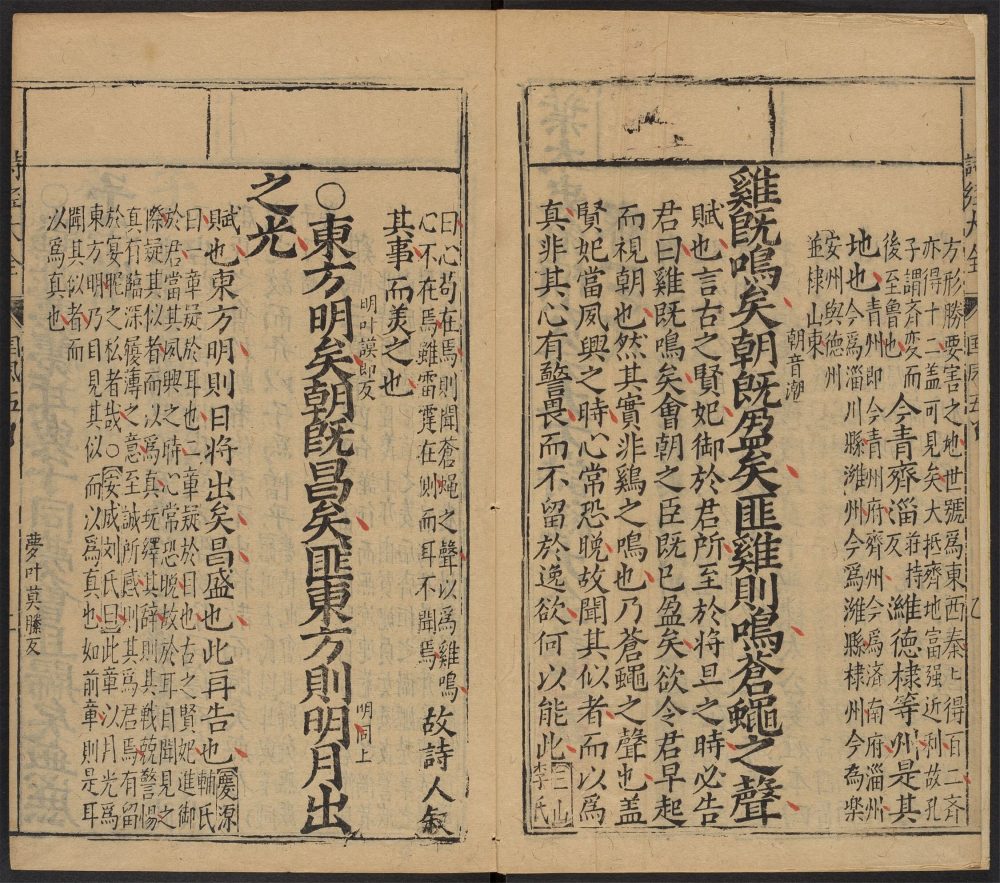 方形勝要害之地世號爲東西秦亡得百二斉
亦得十二盖可見矣大抵齊地富强近利故孔
子謂斉変而
後至魯也
今青齊淄莊持
反
濰德棣等州是其
地也
青州即今青州府齊州今爲済南府淄州
今爲淄川縣濰州今爲濰縣棣州今為樂
安州與德州
並棣山東
雞旣鳴矣朝旣盈矣匪雞則鳴蒼蠅之聲
朝音潮
賦也言古之賢妃御於君所至於将旦之時必告
君曰雞既鳴矣會朝之臣既已盈矣欲令君早起
而視朝也然其實非鷄之鳴也乃蒼蠅之聲也盖
賢妃當夙興之時心常恐晚故聞其似者而以爲
真非其心有警畏而不留於逸欲何以能此
三山
李氏
曰心苟在焉則聞蒼蝇之聲以為雞鳴
心不在焉雖雷霆在則而耳不聞焉
故詩人叙
其事而美之也
○東方明矣朝旣昌矣匪東方則明月出
明叶謨郎反
明同上
之光
賦也東方明則日将出矣昌盛也此再告也
慶源
輔氏
曰一章疑於耳也二章疑於目也古之賢妃進御
於君當其夙興之時心常恐晚故於耳目聞見之
際疑其似者而以爲真玩繹其辞則其戰兢警惕
真有臨深履薄之意至誠所感則其爲君焉有留
於宴昵之私者哉○安成刘氏曰此章以月光爲
東方明乃目見其似而以為真也如前章則是耳
聞其似者而
以爲真也
夢叶莫滕反